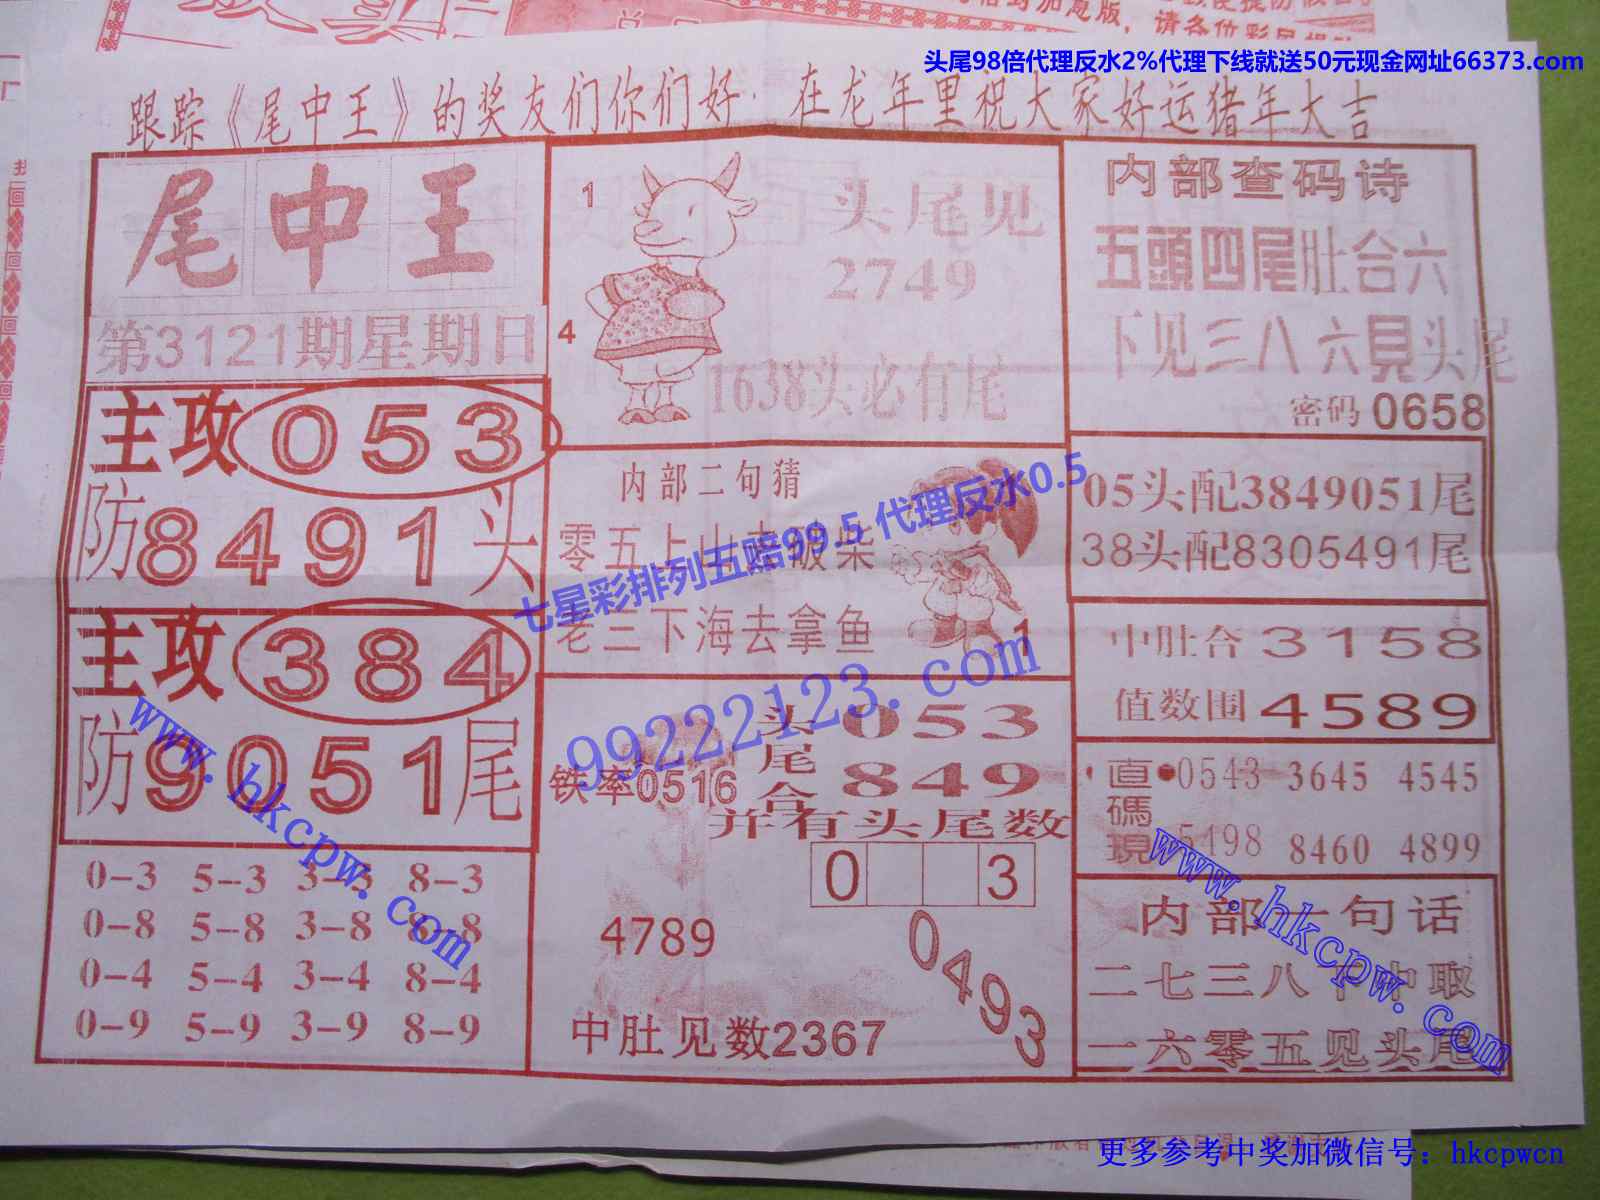 请各位彩民
头尾98倍代理反水2%代理下线就送50元现金网址66373.com
跟踪《尾中王》的奖友们你们好·在龙年里祝大家好运猪年大吉
尾中王
第3121期星期日
主攻053
防8491头
主攻384
防9051尾
0-3 5-3 3-3 8-3
0-8 5-8 3-8 8-8
0-4 5-4 3-4 8-4
0-9 5-9 3-9 8-9
1
4
头尾见
2749
1638头必有尾
内部二句猜
零五上山去破柴
老三下海去拿鱼
1
七星彩排列五赔99.5 代理反水0.5
99222123.com
铁率0516
头尾合
053
849
并有头尾数
0 3
4789
0493
中肚见数2367
内部查码诗
五頭四尾肚合六
下见三八六見头尾
密码0658
05头配3849051尾
38头配8305491尾
中肚合3158
值数围4589
直碼現
0543 3645 4545
5498 8460 4899
内部一句话
二七三八中取
一六零五见头尾
www.hkcpw.com
www.hkcpw.com
更多参考中奖加微信号：hkcpwcn